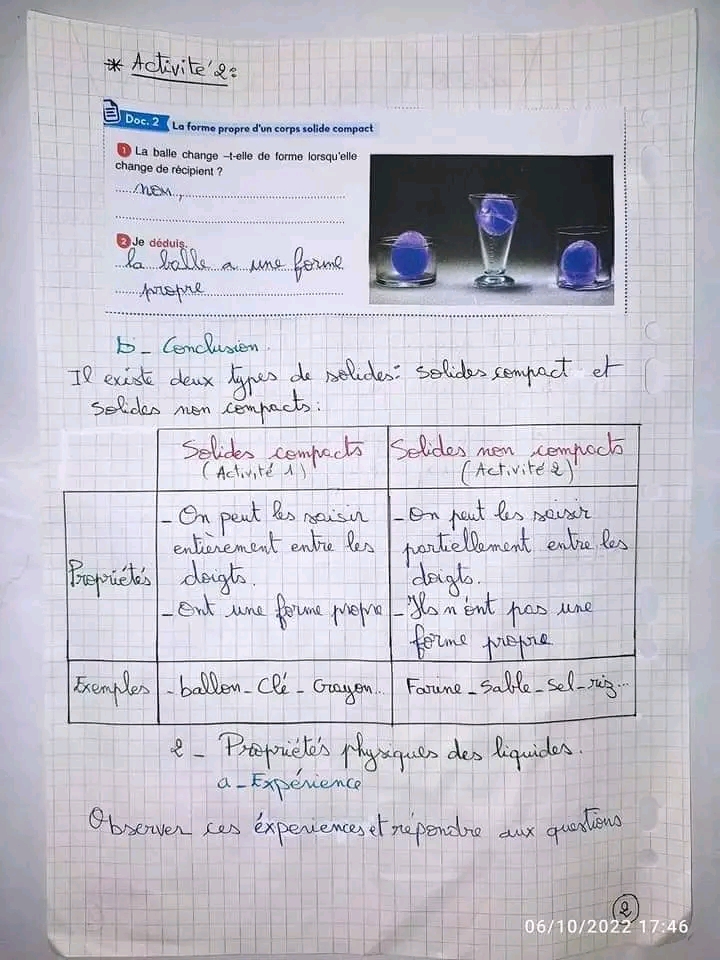 * Activité 2:
Doc. 2 La forme propre d'un corps solide compact
1 La balle change –t-elle de forme lorsqu'elle
change de récipient ?
non,
2 Je déduis.
la balle a une forme
propre
b - Conclusion.
Il existe deux types de solides: solides compact et
solides non compacts:
Solides compacts
(Activité 1)
Solides non compacts
(Activité 2)
Propriétés
- On peut les saisir
entièrement entre les
doigts.
- Ont une forme propre
- On peut les saisir
partiellement entre les
doigts.
- Ils n'ont pas une
forme propre
Exemples
- ballon - Clé - Crayon...
Farine - Sable - Sel - riz...
2 - Propriétés physiques des liquides.
a - Expérience
Observer ces éxperiences et répondre aux questions
2
06/10/2022 17:46